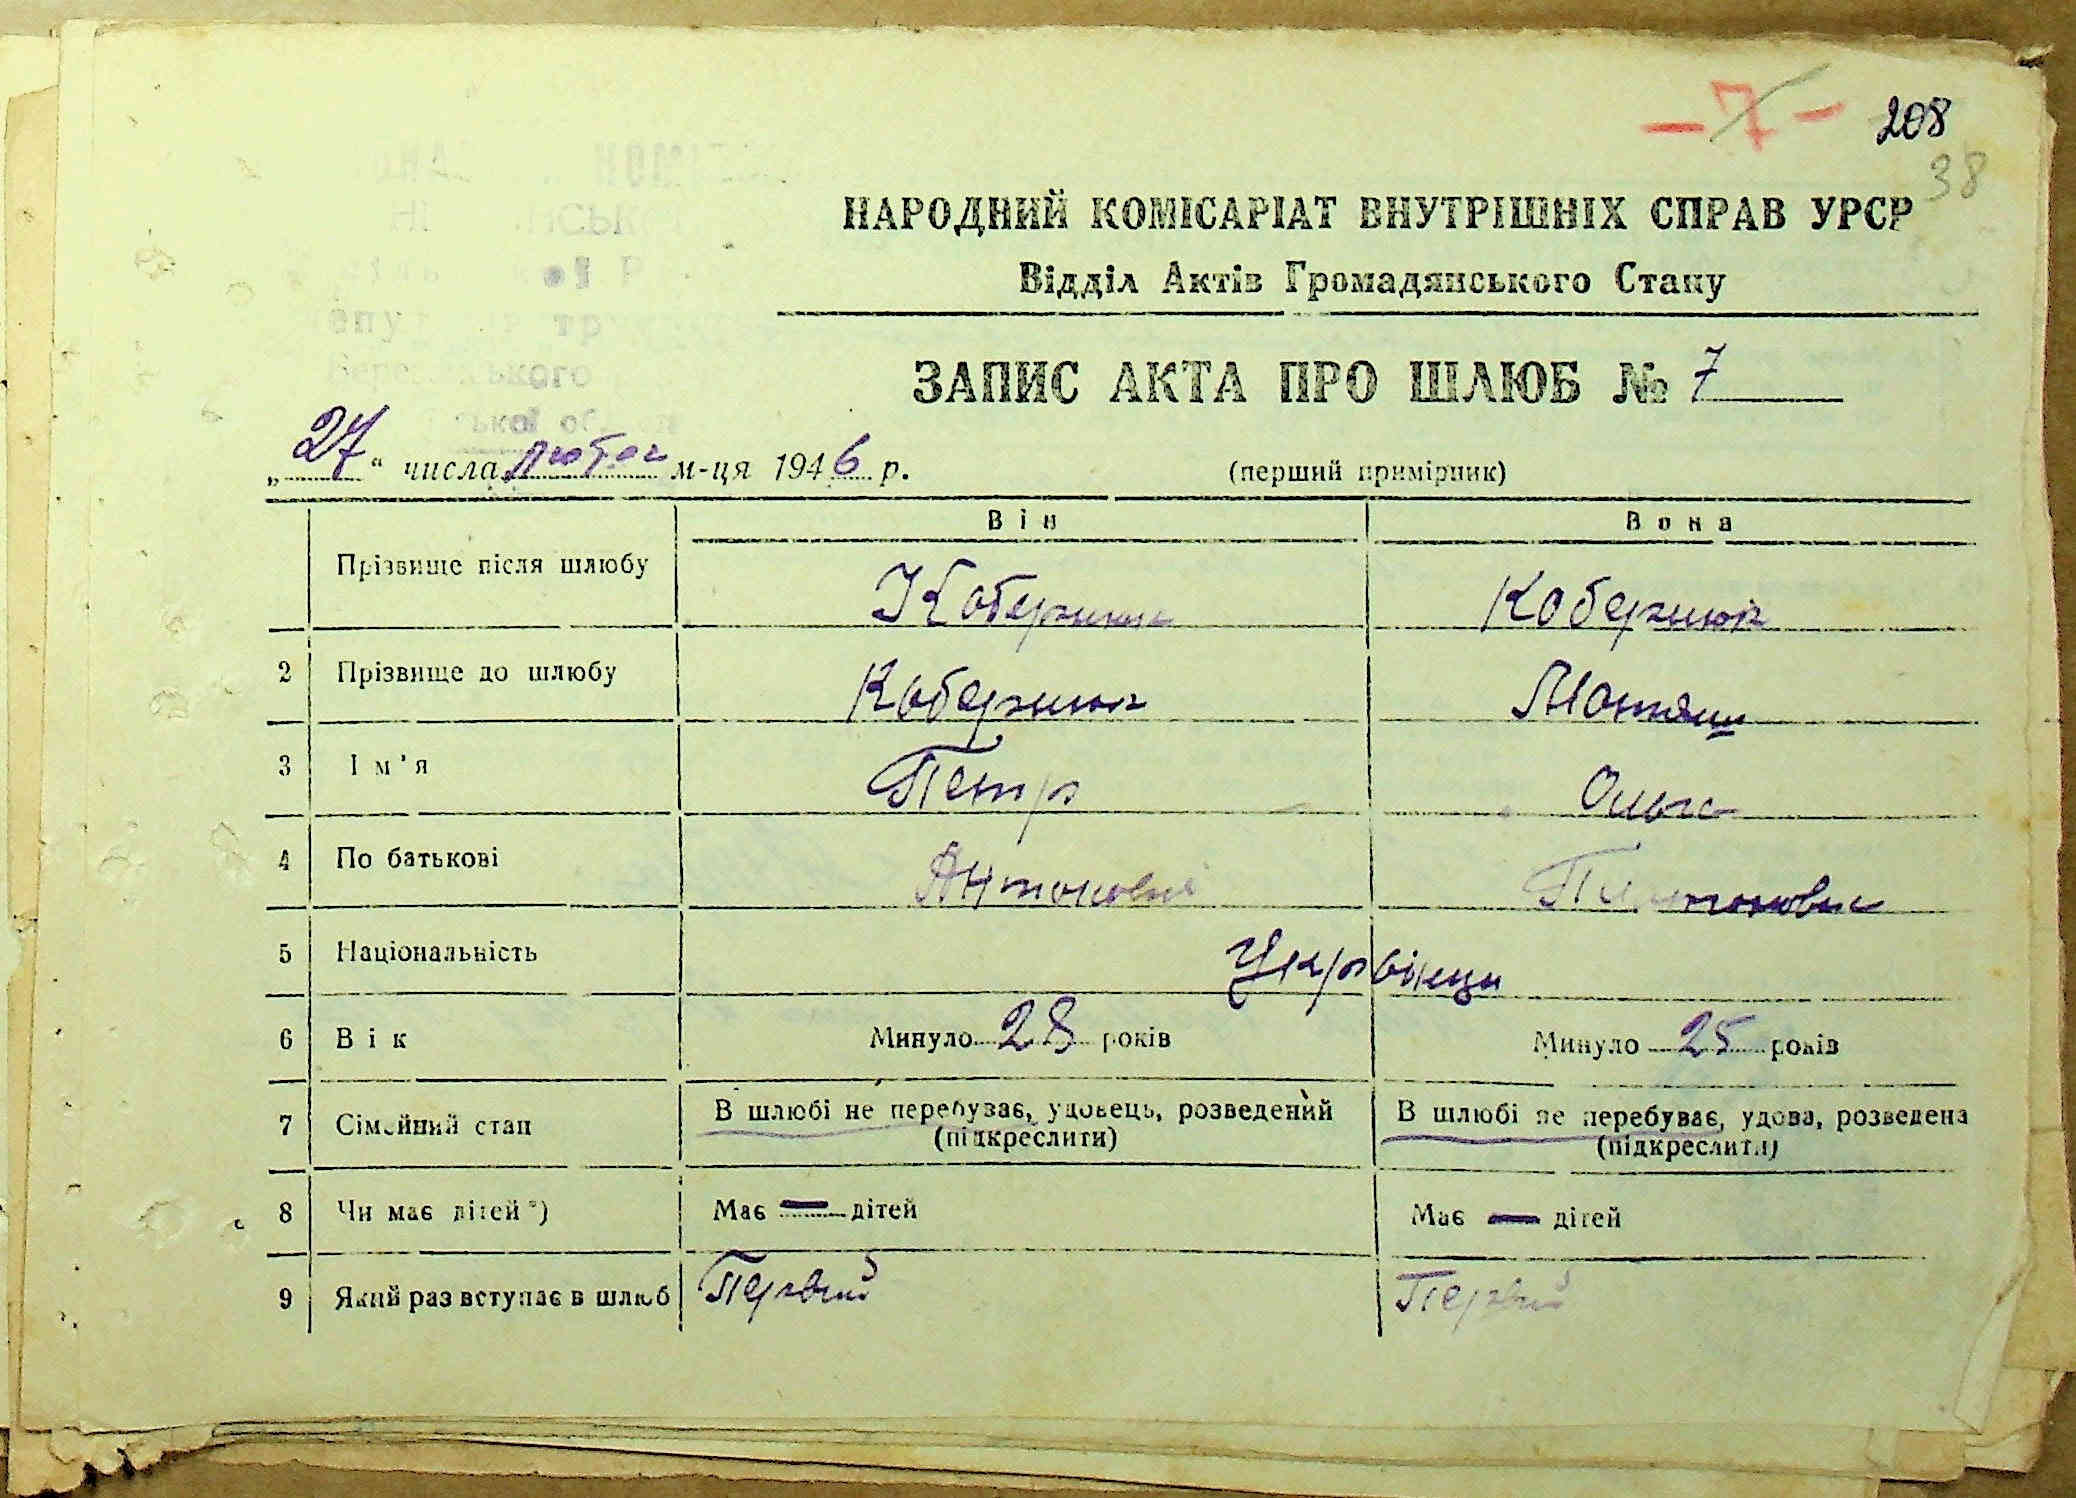 -7- 208
38
НАРОДНИЙ КОМІСАРІАТ ВНУТРІШНІХ СПРАВ УРСР
Відділ Актів Громадянського Стану
ЗАПИС АКТА ПРО ШЛЮБ № 7
„27“ числа лютого м-ця 1946 р. (перший примірник)
Він Вона
Прізвище після шлюбу Кобернюк Кобернюк
2 Прізвище до шлюбу Кобернюк
3 Ім'я Петр Ольга
4 По батькові Антонович
5 Національність Українци
6 Вік Минуло 28 років Минуло 25 років
7 Сімейний стан В шлюбі не перебуває, удовець, розведений В шлюбі не перебуває, удова, розведена
(підкреслити) (підкреслити)
8 Чи має дітей *) Має — дітей Має — дітей
9 Який раз вступає в шлюб Первий Первий